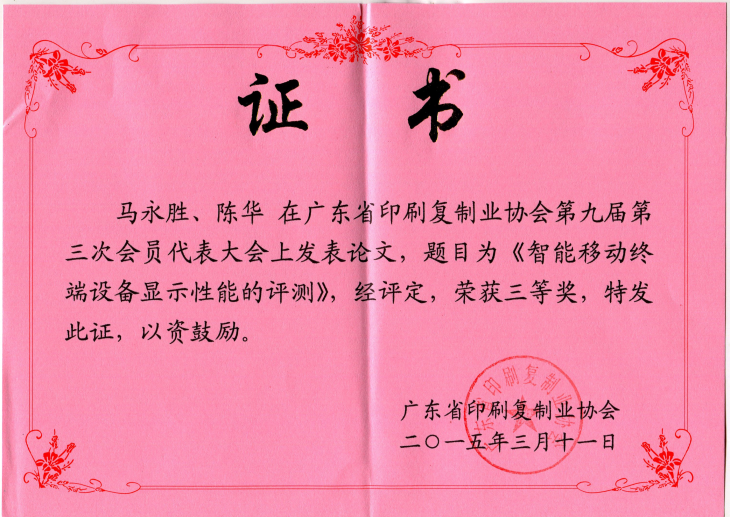 证 书
马永胜、陈华 在广东省印刷复制业协会第九届第
三次会员代表大会上发表论文，题目为《智能移动终
端设备显示性能的评测》，经评定，荣获三等奖，特发
此证，以资鼓励。
广东省印刷复制业协会
二〇一五年三月十一日
广东省印刷复制业协会